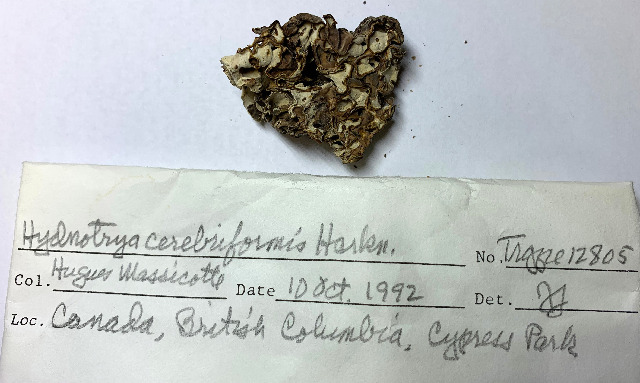 Hydnotrya cerebriformis Harkn. No. Trappe 12805
Col. Hugues Massicotte Date 10 Oct. 1992 Det.
Loc. Canada, British Columbia, Cypress Park